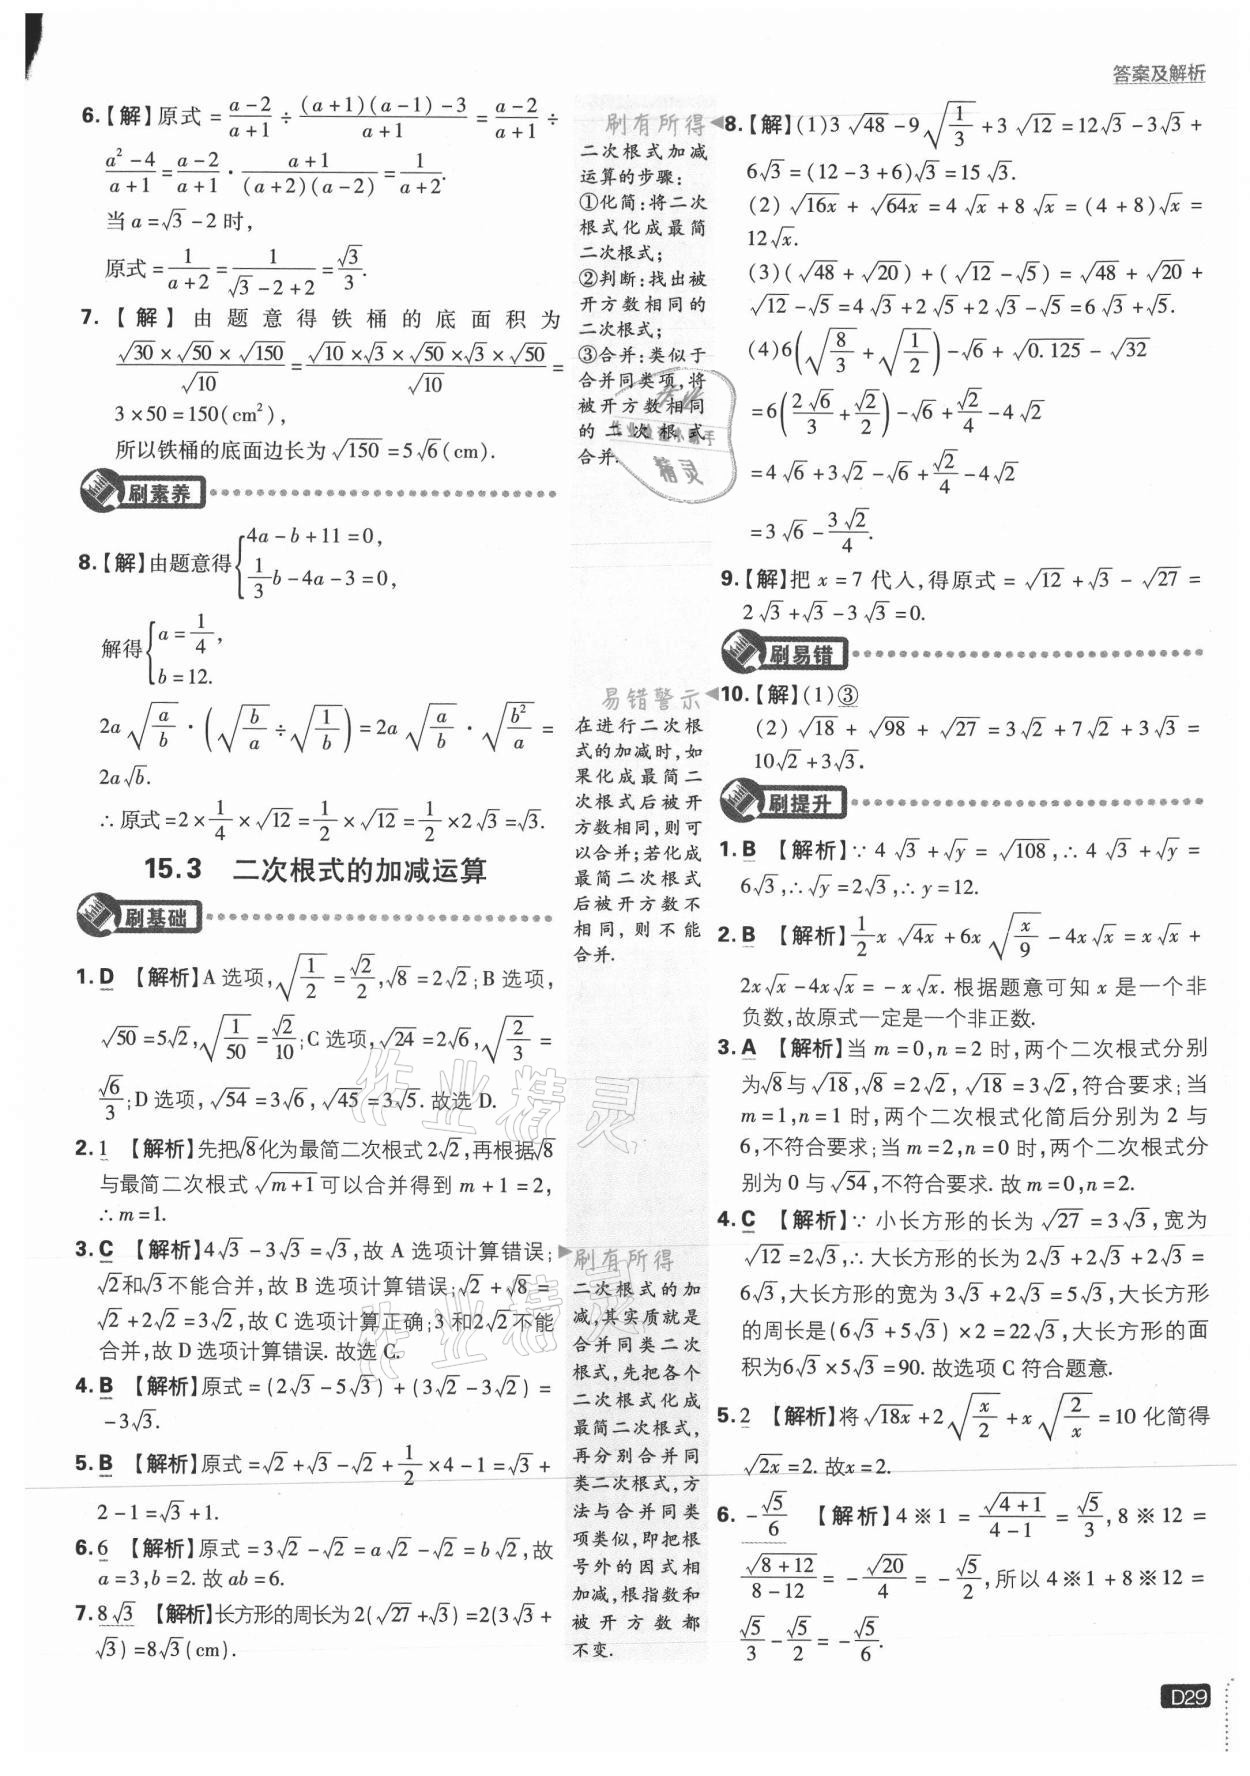 答案及解析
6.【解】原式=(a-2)/(a+1)÷((a+1)(a-1)-3)/(a+1)=(a-2)/(a+1)÷
(a²-4)/(a+1)=(a-2)/(a+1)·(a+1)/((a+2)(a-2))=1/(a+2).
当a=√3-2时,
原式=1/(a+2)=1/(√3-2+2)=√3/3.
7.【解】由题意得铁桶的底面积为
(√30×√50×√150)/√10=(√10×√3×√50×√3×√50)/√10=
3×50=150(cm²),
所以铁桶的底面边长为√150=5√6(cm).
刷素养
8.【解】由题意得{4a-b+11=0,
(1/3)b-4a-3=0,
解得{a=1/4,
b=12.
2a√(a/b)·(√(b/a)÷√(1/b))=2a√(a/b)·√(b²/a)=
2a√b.
∴原式=2×1/4×√12=1/2×√12=1/2×2√3=√3.
15.3 二次根式的加减运算
刷基础
1.D 【解析】A选项,√(1/2)=√2/2,√8=2√2;B选项,
√50=5√2,√(1/50)=√2/10;C选项,√24=2√6,√(2/3)=
√6/3;D选项,√54=3√6,√45=3√5.故选D.
2.1 【解析】先把√8化为最简二次根式2√2,再根据√8
与最简二次根式√(m+1)可以合并得到m+1=2,
∴m=1.
3.C 【解析】4√3-3√3=√3,故A选项计算错误;
√2和√3不能合并,故B选项计算错误;√2+√8=
√2+2√2=3√2,故C选项计算正确;3和2√2不能
合并,故D选项计算错误.故选C.
4.B 【解析】原式=(2√3-5√3)+(3√2-3√2)=
-3√3.
5.B 【解析】原式=√2+√3-√2+1/2×4-1=√3+
2-1=√3+1.
6.6 【解析】原式=3√2-√2=a√2-√2=b√2,故
a=3,b=2.故ab=6.
7.8√3 【解析】长方形的周长为2(√27+√3)=2(3√3+
√3)=8√3(cm).
刷有所得
二次根式加减
运算的步骤:
①化简:将二次
根式化成最简
二次根式;
②判断:找出被
开方数相同的
二次根式;
③合并:类似于
合并同类项,将
被开方数相同
的二次根式
合并.
易错警示
在进行二次根
式的加减时,如
果化成最简二
次根式后被开
方数相同,则可
以合并;若化成
最简二次根式
后被开方数不
相同,则不能
合并.
刷有所得
二次根式的加
减,其实质就是
合并同类二次
根式,先把各个
二次根式化成
最简二次根式,
再分别合并同
类二次根式,方
法与合并同类
项类似,即把根
号外的因式相
加减,根指数和
被开方数都
不变.
8.【解】(1)3√48-9√(1/3)+3√12=12√3-3√3+
6√3=(12-3+6)√3=15√3.
(2)√16x+√64x=4√x+8√x=(4+8)√x=
12√x.
(3)(√48+√20)+(√12-√5)=√48+√20+
√12-√5=4√3+2√5+2√3-√5=6√3+√5.
(4)6(√(8/3)+√(1/2))-√6+√0.125-√32
=6(2√6/3+√2/2)-√6+√2/4-4√2
=4√6+3√2-√6+√2/4-4√2
=3√6-3√2/4.
9.【解】把x=7代入,得原式=√12+√3-√27=
2√3+√3-3√3=0.
刷易错
10.【解】(1)③
(2)√18+√98+√27=3√2+7√2+3√3=
10√2+3√3.
刷提升
1.B 【解析】∵4√3+√y=√108,∴4√3+√y=
6√3,∴√y=2√3,∴y=12.
2.B 【解析】(1/2)x√4x+6x√(x/9)-4x√x=x√x+
2x√x-4x√x=-x√x.根据题意可知x是一个非
负数,故原式一定是一个非正数.
3.A 【解析】当m=0,n=2时,两个二次根式分别
为√8与√18,√8=2√2,√18=3√2,符合要求;当
m=1,n=1时,两个二次根式化简后分别为2与
6,不符合要求;当m=2,n=0时,两个二次根式分
别为0与√54,不符合要求.故m=0,n=2.
4.C 【解析】∵小长方形的长为√27=3√3,宽为
√12=2√3,∴大长方形的长为2√3+2√3+2√3=
6√3,大长方形的宽为3√3+2√3=5√3,大长方形
的周长是(6√3+5√3)×2=22√3,大长方形的面
积为6√3×5√3=90.故选项C符合题意.
5.2 【解析】将√18x+2√(x/2)+x√(2/x)=10化简得
√2x=2.故x=2.
6.-√5/6 【解析】4※1=√(4+1)/(4-1)=√5/3,8※12=
√(8+12)/(8-12)=-√20/4=-√5/2,所以4※1+8※12=
√5/3-√5/2=-√5/6.
D29
作业精灵
作业精灵